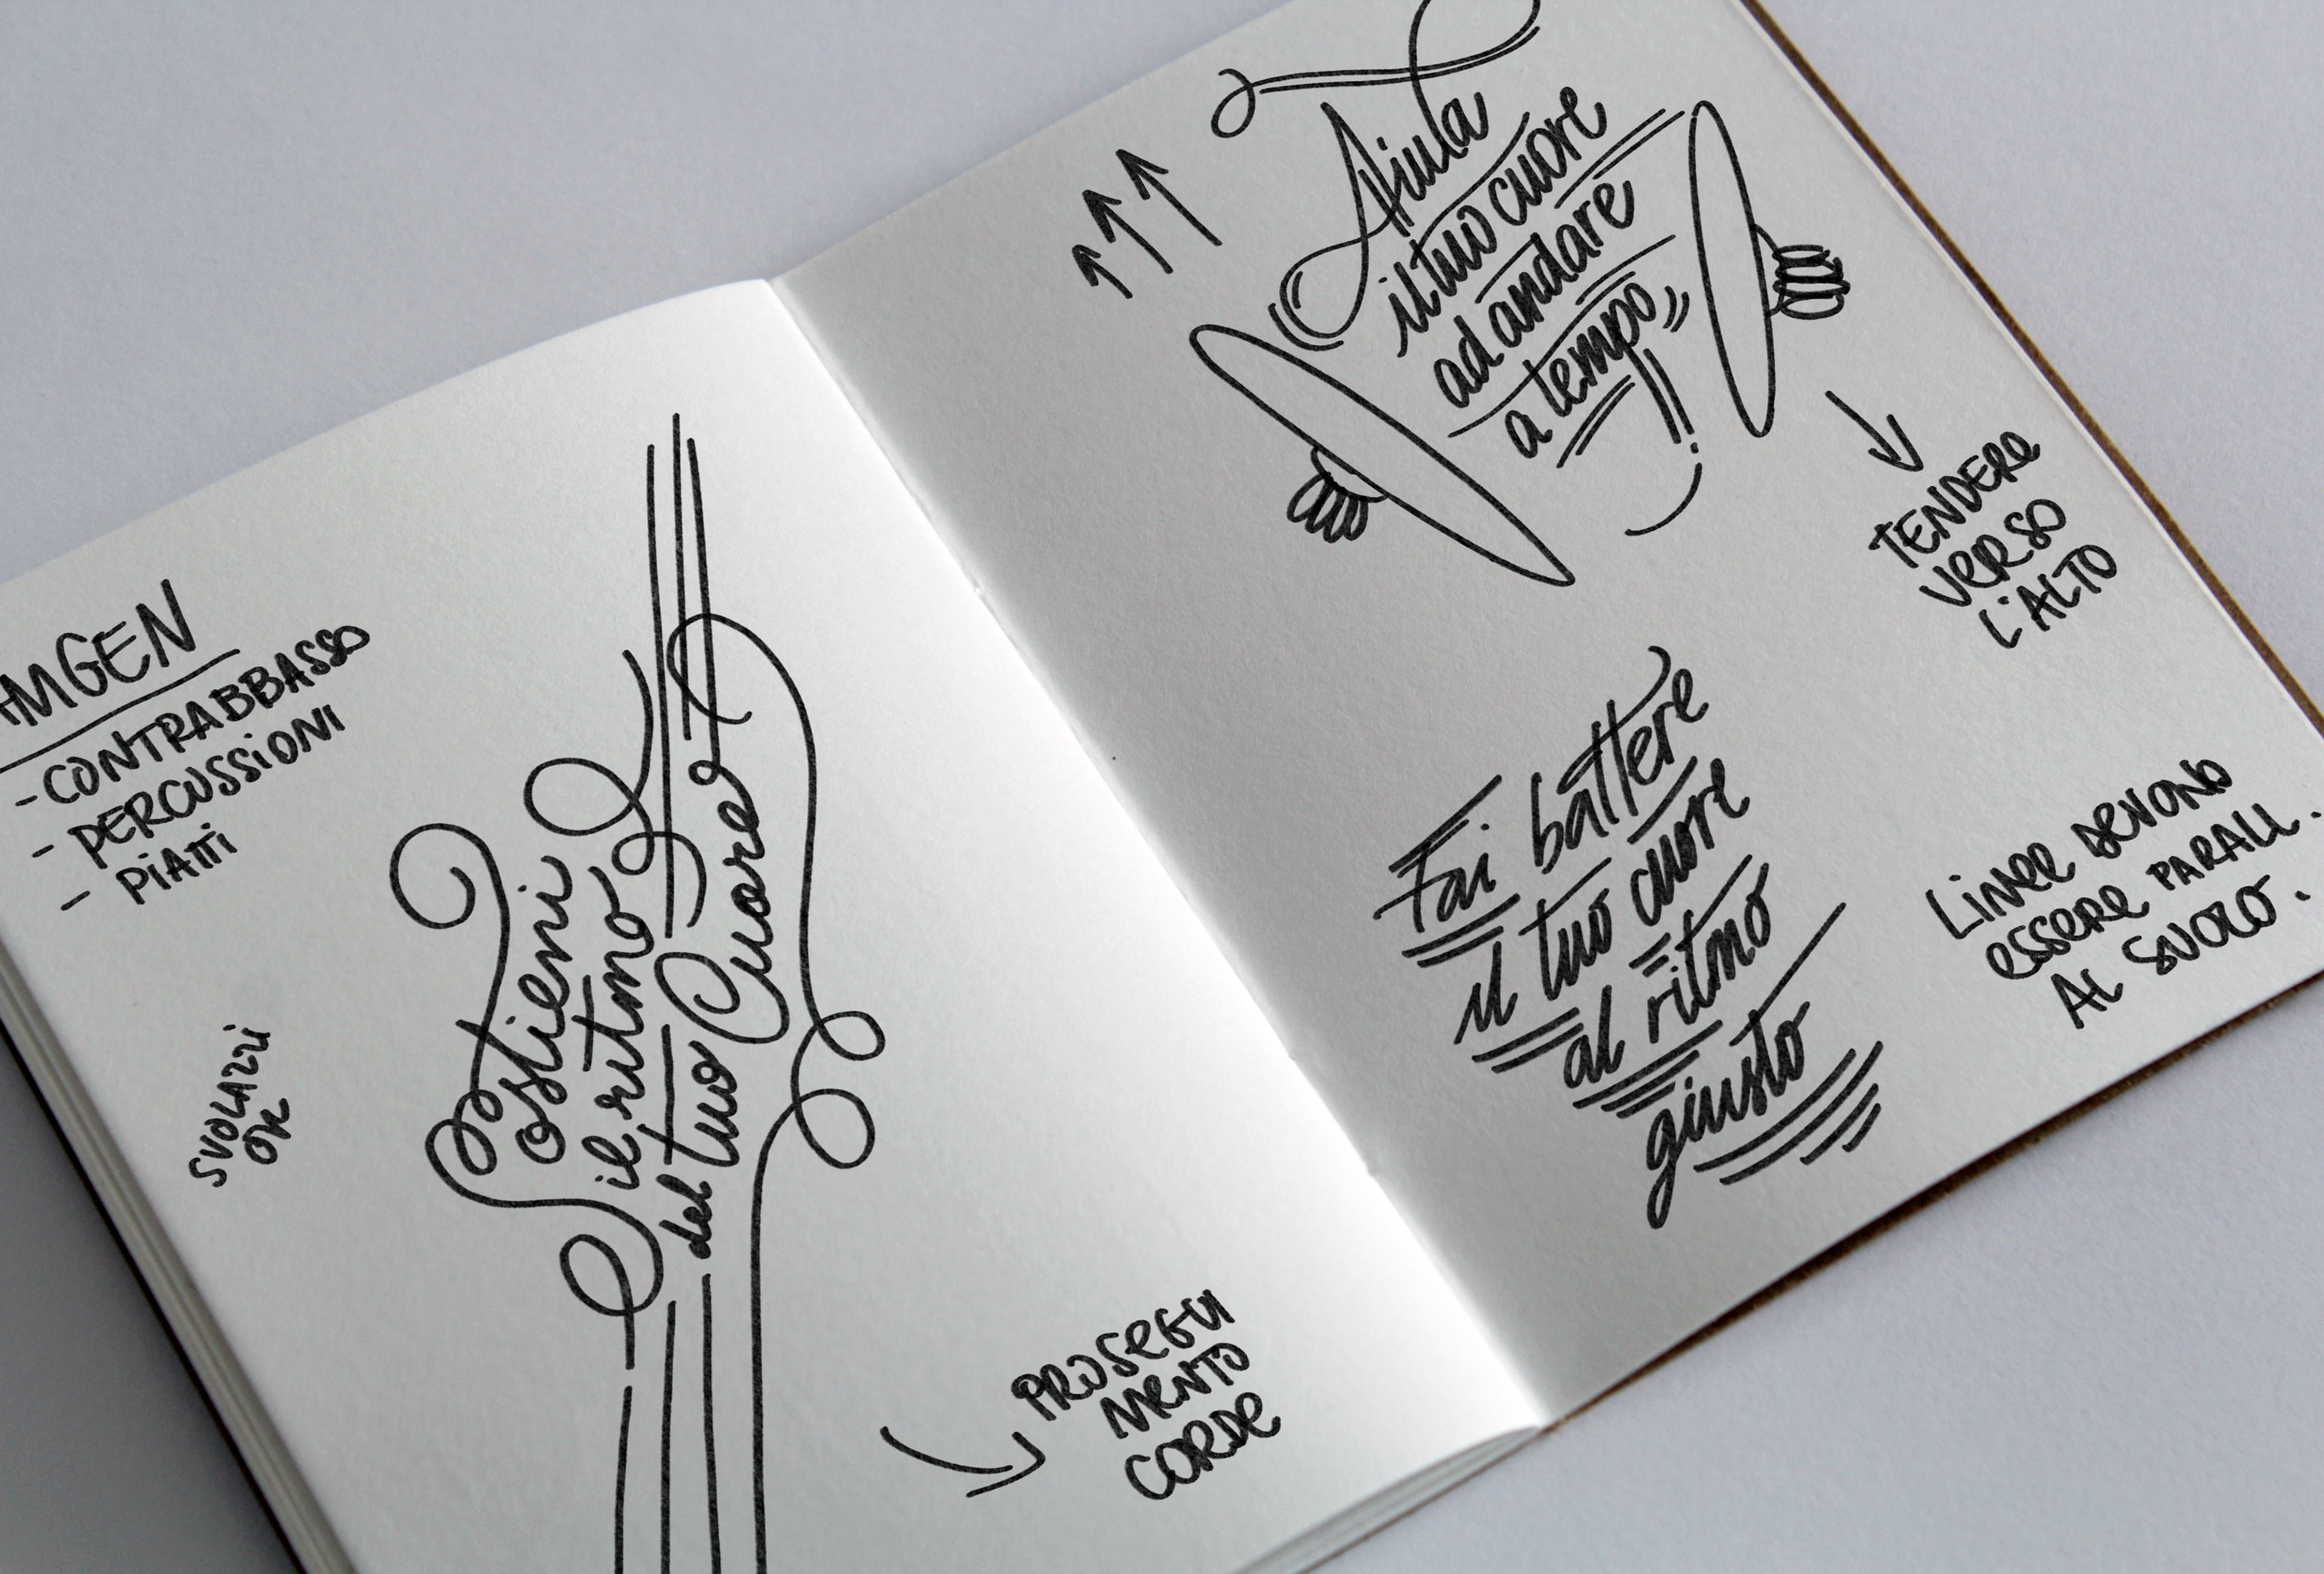 AMGEN
- CONTRABBASSO
- PERCUSSIONI
- PIATTI
SVOLAZZI
OK
Sostieni
il ritmo
del tuo Cuore
PROSEGUI
MENTO
CORDE
Aiuta
il tuo cuore
ad andare
a tempo
TENDERE
VERSO
L'ALTO
Fai battere
il tuo cuore
al ritmo
giusto
LINEE DEVONO
ESSERE PARALL.
AL SUOLO.